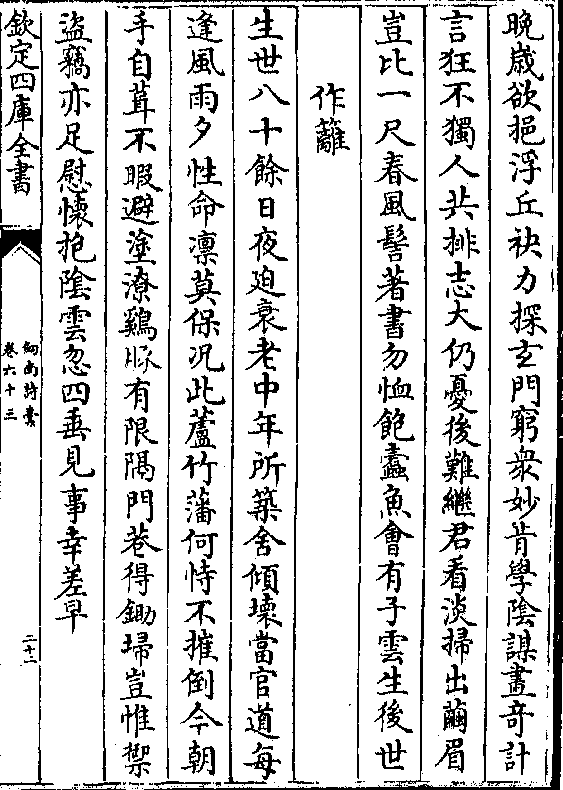 晩歳欲挹浮丘袂力探玄門窮衆妙肯學陰謀畫竒計
言狂不獨人共排志大仍憂後難繼君看淡掃出繭眉
豈比一尺春風髻著書勿恤飽蠧魚會有子雲生後世
作籬
生世八十餘日夜迫衰老中年所築舍傾壊當官道每
逢風雨夕性命凛莫保况此蘆竹藩何恃不摧倒今朝
手自葺不暇避塗潦鷄豚有限隔門巷得鋤埽豈惟禦
盜竊亦足慰懷抱陰雲忽四垂見事幸差早
欽定四庫全書
劒南詩藁
卷六十三
二十二